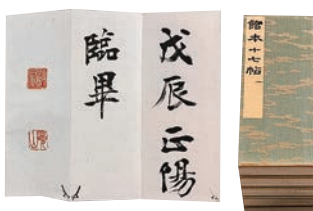 戊辰正陽
臨畢
館本十七帖